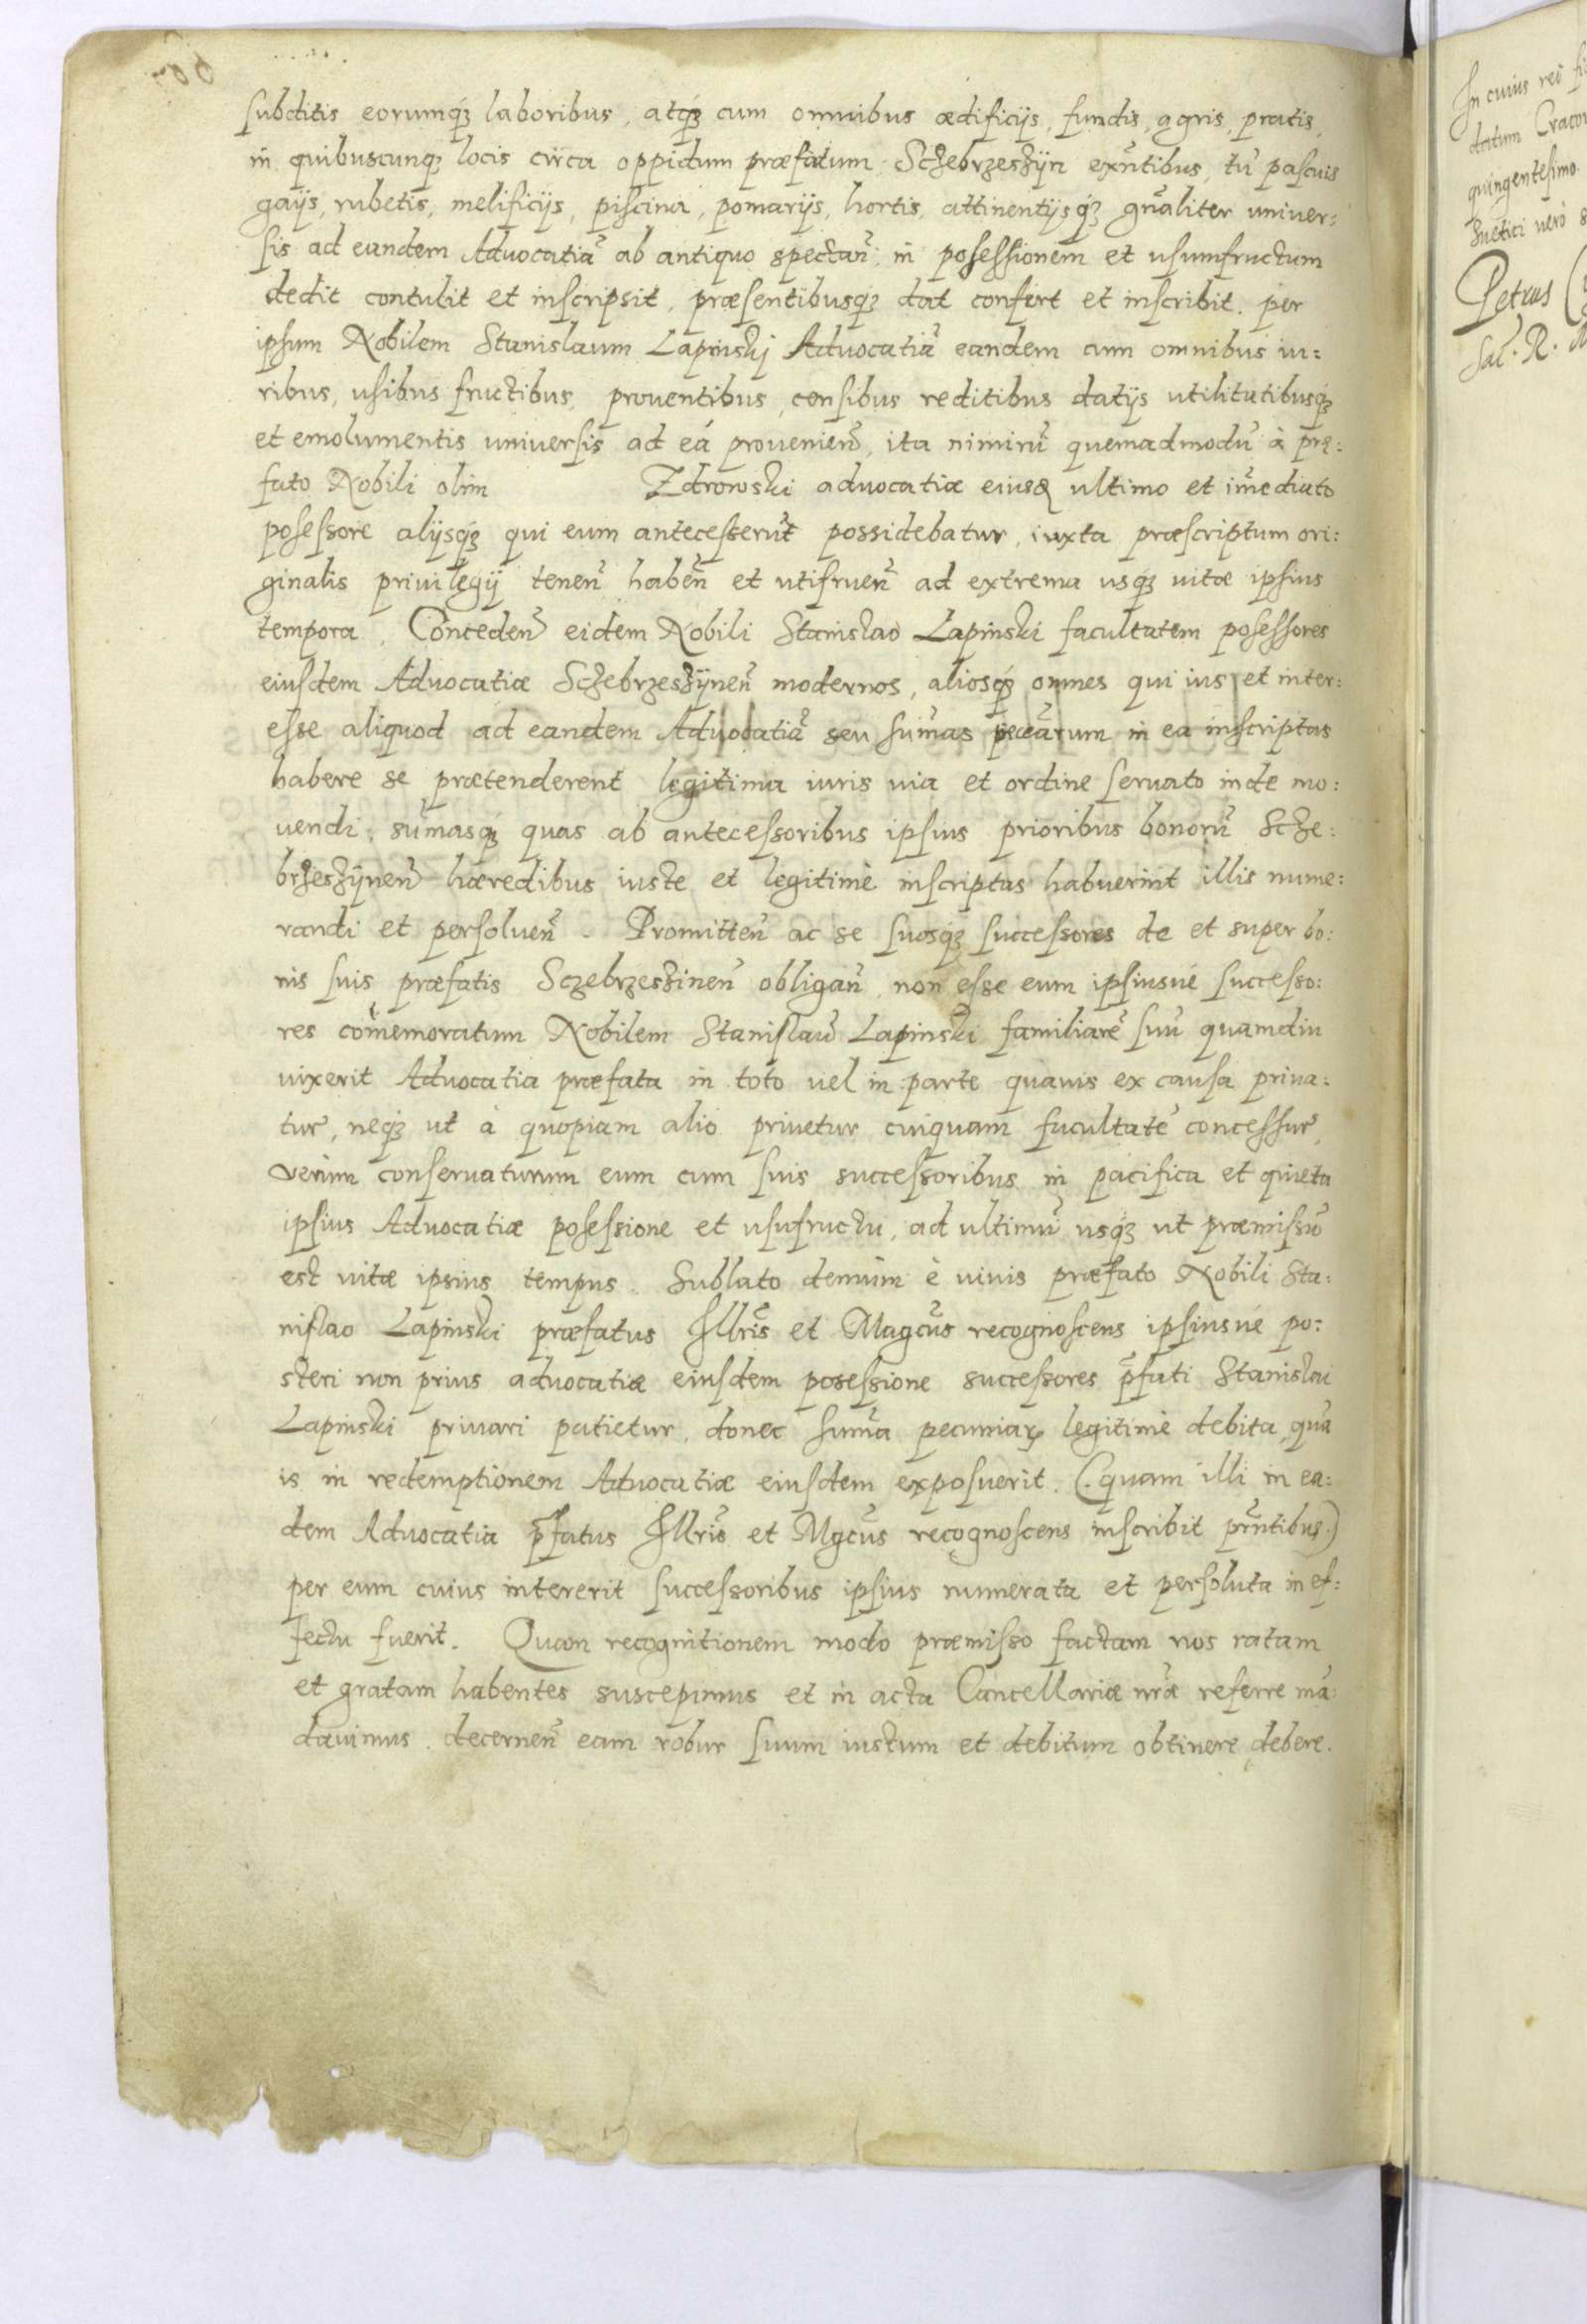 subditis eorumq́ꝫ laboribus, atq́ꝫ cum omnibus ædificijs, fundis, agris, pratis,
in quibuscunq́ꝫ locis circa oppidum præfatum Sczebrzeszÿn exñtibus, tũ pascuis
gaijs, rubetis, melificijs, piscina, pomarijs, hortis, attinentijsq́ꝫ gñaliter univer:
sis ad eandem Advocatiã ab antiquo spectañ: in posessionem et usumfructum
dedit contulit et inscripsit, præsentibusq́ꝫ dat confert et inscribit. per
ipsum Nobilem Stanislaum Lapinskj Advocatiã eandem cum omnibus iu:
ribus, usibus fructibus, prouentibus, censibus reditibus datijs utilitatibusq́ꝫ
et emolumentis universis ad eã prouenieñ, ita nimirũ quemadmodũ à præ:
fato Nobili olim Zdrowski advocatiæ eiusd ultimo et im̃ediato
posessore alijsq́ꝫ qui eum antecesserũt possidebatur, iuxta præscriptum ori:
ginalis priuilegij teneñ habeñ et utifrueñ ad extrema usq́ꝫ uitæ ipsius
tempora. Concedeñ eidem Nobili Stanislao Lapinski facultatem posessores
eiusdem Advocatiæ Sczebrzeszÿneñ modernos, aliosq́ꝫ omnes qui ius et inter:
esse aliquod ad eandem Advocatiã seu sum̃as pecẽarum in ea inscriptas
habere se prætenderent legitima iuris uia et ordine seruato inde mo:
uendi, sum̃asq́ꝫ quas ab antecessoribus ipsius prioribus bonorũ Scze:
brzeszÿneñ hæredibus iuste et legitimè inscriptas habuerint illis nume:
randi et persolueñ. Promitteñ ac se suosq́ꝫ successores de et super bo:
nis suis præfatis Sczebrzeszineñ obligañ, non esse eum ipsiusué successo:
res com̃emoratum Nobilem Stanislaũ Lapinski familiarẽ suũ quamdiu
uixerit Advocatia præfata in toto uel in parte quauis ex causa priua:
tur̃, neq́ꝫ ut à quopiam alio priuetur cuiquam facultatẽ concessur̃,
verùm conseruaturum eum cum suis successoribus in pacifica et quieta
ipsius Advocatiæ posessione et usufructu, ad ultimũ usq́ꝫ ut præmissũ
est uitæ ipsius tempus. Sublato demùm è uiuis præfato Nobili Sta:
nislao Lapinski præfatus Illr̃is et Magc̃us recognoscens ipsiusué po:
steri non prius advocatiæ eiusdem posessione successores p̃fati Stanislai
Lapinski priuari patietur, donec sum̃a pecuniaꝝ legitimè debita, quã
is in redemptionem Advocatiæ eiusdem exposuerit. (quam illi in ea:
dem Advocatia p̃fatus Illr̃is et Mgc̃us recognoscens inscribit pr̃ntibus.)
per eum cuius intererit successoribus ipsius numerata et persoluta in ef:
fectu fuerit. Quam recognitionem modo præmisso factam nos ratam
et gratam habentes suscepimus et in acta Cancellariæ nr̃æ referre mã:
dauimus. decerneñ eam robur suum iustum et debitum obtinere debere.
In cuius rei
datum Craco
quingentesimo
Suetici uerò
Petrus
Sac. R. M